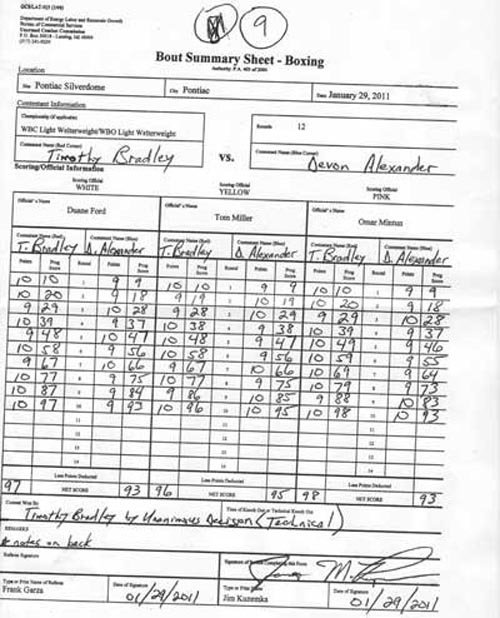 9
Department of Energy Labor and Economic Growth
Bureau of Commercial Services
Unarmed Combat Commission
Bout Summary Sheet - Boxing
Authority: P.A. 403 of 2004
Location
Site Pontiac Silverdome City Pontiac Date January 29, 2011
Contestant Information
Championship (if applicable)
WBC Light Welterweight/WBO Light Welterweight Rounds 12
Contestant Name (Red Corner) Contestant Name (Blue Corner)
Timothy Bradley VS. Devon Alexander
Scoring/Official Information
Scoring Official Scoring Official Scoring Official
WHITE YELLOW PINK
Official's Name Official's Name Official's Name
Duane Ford Tom Miller Omar Mintun
Contestant Name (Red) Contestant Name (Blue) Contestant Name (Red) Contestant Name (Blue) Contestant Name (Red) Contestant Name (Blue)
T. Bradley D. Alexander T. Bradley D. Alexander T. Bradley D. Alexander
Points Prog Score Round Points Prog Score Points Prog Score Round Points Prog Score Points Prog Score Round Points Prog Score
10 10 1 9 9 10 10 1 9 9 10 10 1 9 9
10 20 2 9 18 9 19 2 10 19 10 20 2 9 18
9 29 3 10 28 9 28 3 10 29 9 29 3 10 28
10 39 4 9 37 10 38 4 9 38 10 39 4 9 37
9 48 5 10 47 10 48 5 9 47 10 49 5 9 46
10 58 6 9 56 10 58 6 9 56 10 59 6 9 55
9 67 7 10 66 9 67 7 10 66 10 69 7 9 64
10 77 8 9 75 10 77 8 9 75 10 79 8 9 73
10 87 9 9 84 9 86 9 10 85 9 88 9 10 83
10 97 10 9 93 10 96 10 10 95 10 98 10 10 93
11 11 11
12 12 12
13 13 13
14 14 14
Less Points Deducted Less Points Deducted Less Points Deducted
97 NET SCORE 93 96 NET SCORE 95 98 NET SCORE 93
Contest Won By Time of Knock Out or Technical Knock Out
Timothy Bradley by Unanimous Decison (Technical)
REMARKS
* notes on back
Referee Signature Signature of Person Completing this Form
Type or Print Name of Referee Date of Signature Type or Print Name Date of Signature
Frank Garza 01/29/2011 Jim Kuzemka 01/29/2011